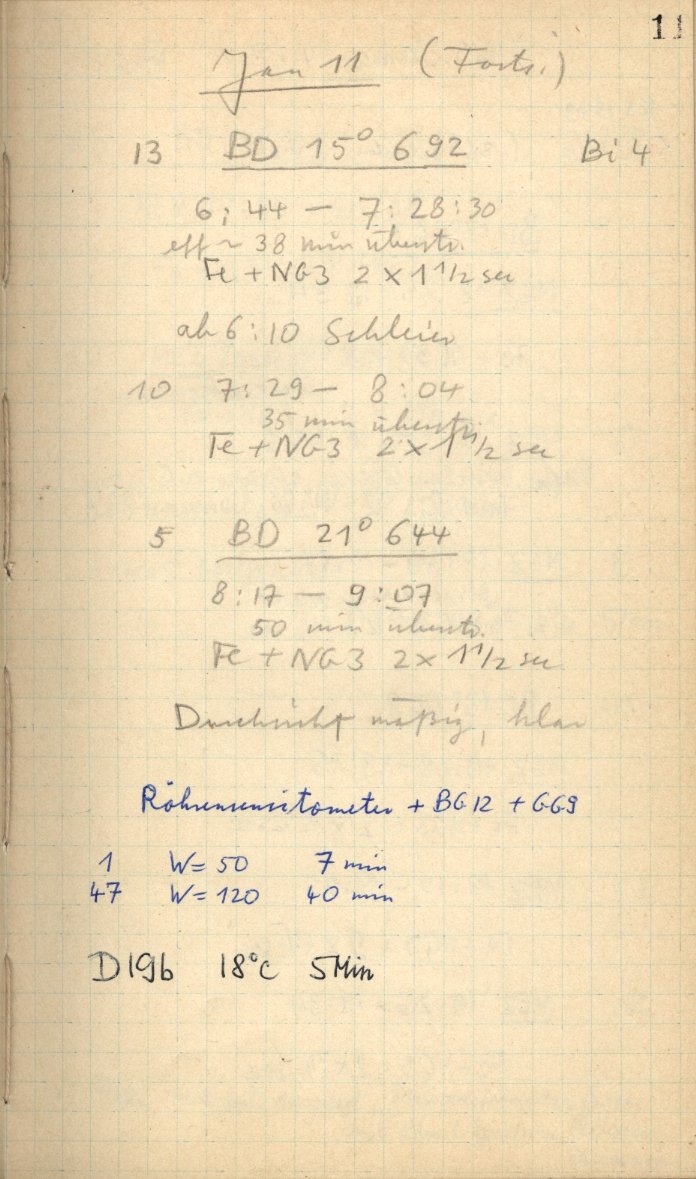 11
Jan 11 (Forts.)
13 BD 15° 692 Bi 4
6: 44 — 7: 28 : 30
eff ~ 38 min überstr.
Fe + NG3 2 x 1 1/2 sec
ab 6:10 Schleier
10 7: 29 — 8 : 04
35 min überstr.
Fe + NG3 2 x 1 1/2 sec
5 BD 21° 644
8:17 — 9:07
50 min überstr.
Fe + NG3 2 x 1 1/2 sec
Durchsicht mäßig, klar
Röhrensensitometer + BG12 + GG9
1 W= 50 7 min
47 W= 120 40 min
D19b 18°C 5 Min